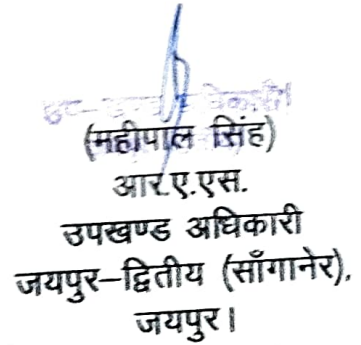 (महीपाल सिंह)
आर.ए.एस.
उपखण्ड अधिकारी
जयपुर–द्वितीय (साँगानेर),
जयपुर।